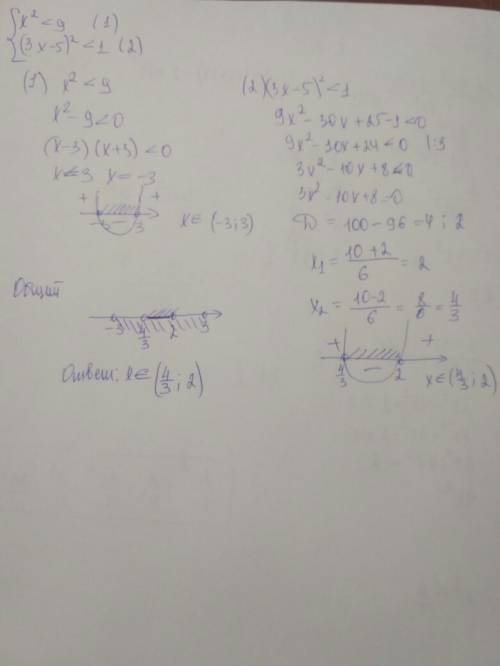 { x² < 9 (1)
(3x-5)² < 1 (2)
(1) x² < 9
x² - 9 < 0
(x-3)(x+3) < 0
x = 3 x = -3
+ - +
-3 3
x ∈ (-3; 3)
(2) (3x-5)² < 1
9x² - 30x + 25 - 1 < 0
9x² - 30x + 24 < 0 |:3
3x² - 10x + 8 < 0
3x² - 10x + 8 = 0
D = 100 - 96 = 4; 2
x₁ = (10+2)/6 = 2
x₂ = (10-2)/6 = 8/6 = 4/3
+ - +
4/3 2
x ∈ (4/3; 2)
Общий
-3 4/3 2 3
Ответ: x ∈ (4/3; 2)